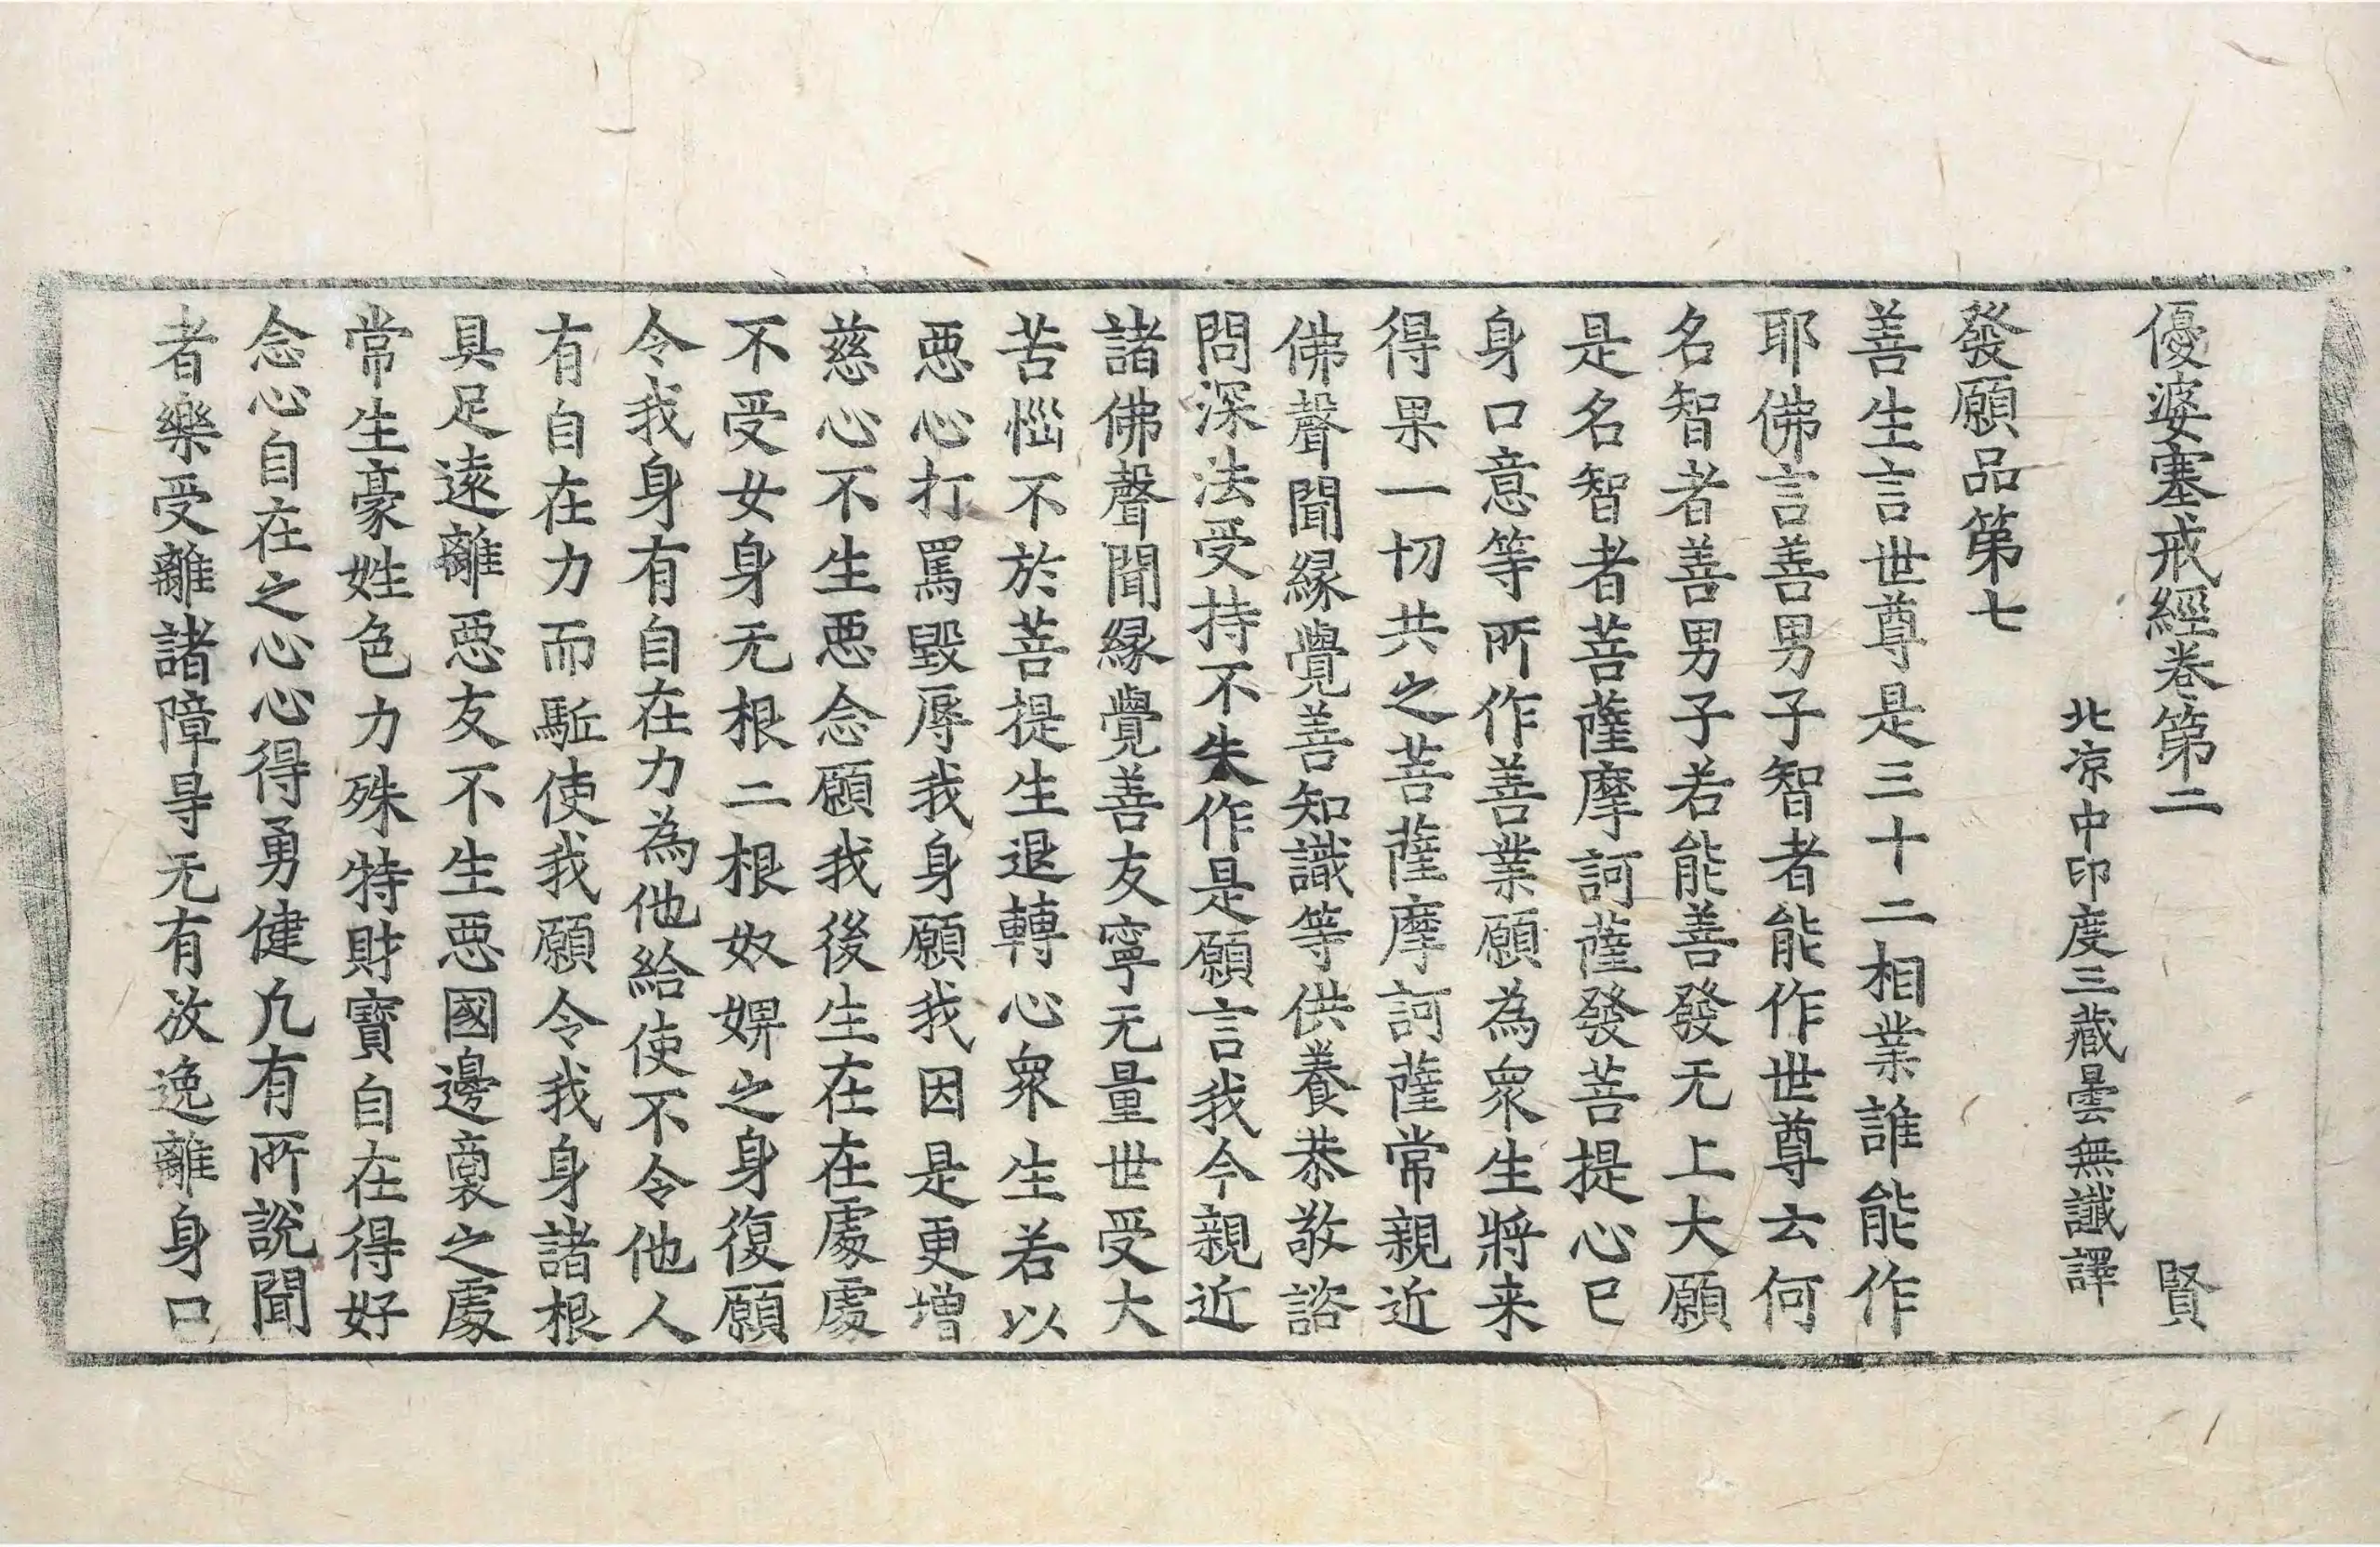 優婆塞戒經卷第二 賢
北涼中印度三藏曇無讖譯
發願品第七
善生言世尊是三十二相業誰能作
耶佛言善男子智者能作世尊云何
名智者善男子若能善發无上大願
是名智者菩薩摩訶薩發菩提心已
身口意等所作善業願為眾生將来
得果一切共之菩薩摩訶薩常親近
佛聲聞緣覺善知識等供養恭敬諮
問深法受持不失作是願言我今親近
諸佛聲聞緣覺善友寧无量世受大
苦惱不於菩提生退轉心眾生若以
惡心打罵毀辱我身願我因是更增
慈心不生惡念願我後生在在處處
不受女身无根二根奴婢之身復願
令我身有自在力為他給使不令他人
有自在力而駈使我願令我身諸根
具足遠離惡友不生惡國邊裔之處
常生豪姓色力殊特財寶自在得好
念心自在之心心得勇健凡有所說聞
者樂受離諸障㝵无有放逸離身口